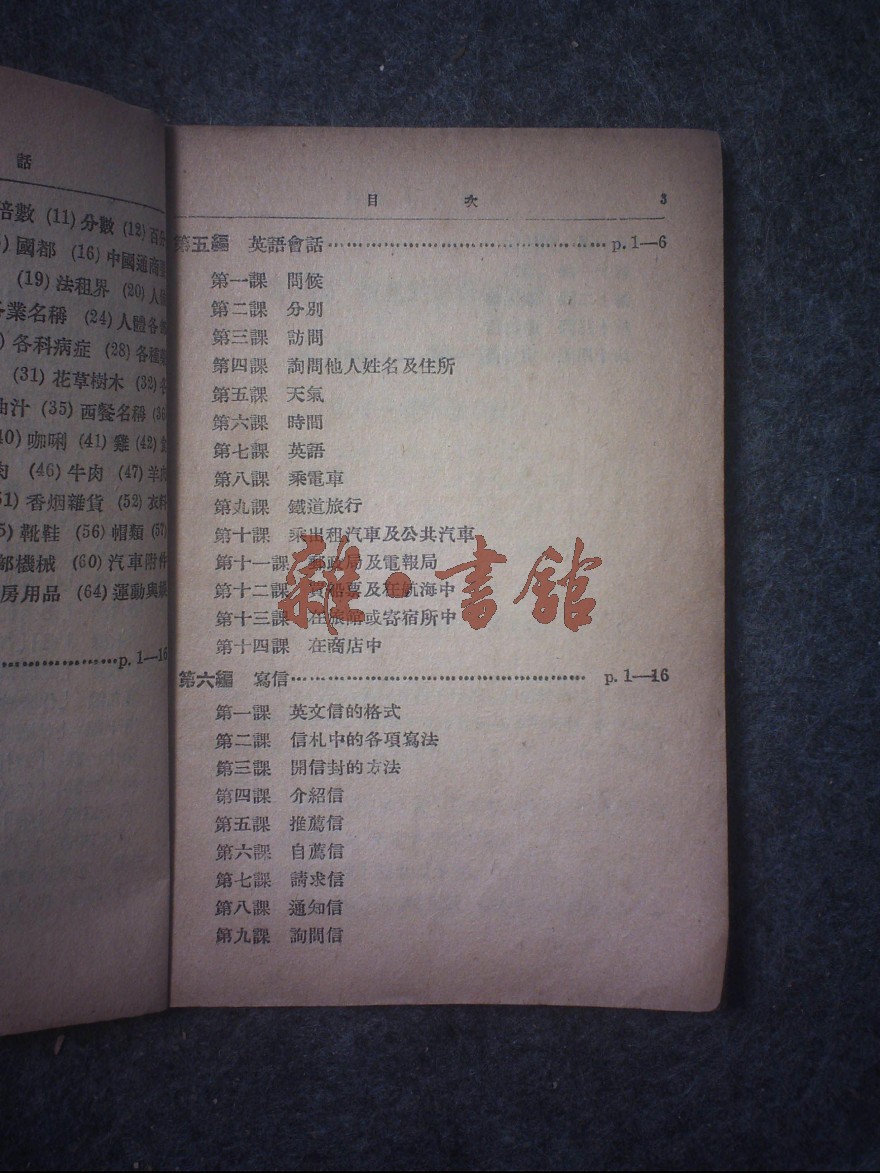 話
倍數 (11) 分數 (12) 百分
國都 (16) 中國通商
(19) 法租界 (20) 人
業名稱 (24) 人體各
各科病症 (28) 各
(31) 花草樹木 (32) 各
油汁 (35) 西餐名稱 (36
40) 咖唎 (41) 雞 (42)
肉 (46) 牛肉 (47) 羊肉
51) 香烟雜貨 (52) 衣料
5) 靴鞋 (56) 帽類 (57)
部機械 (60) 汽車附件
房用品 (64) 運動與
p. 1—16
目 次 3
第五編 英語會話 p. 1—6
第一課 問候
第二課 分別
第三課 訪問
第四課 詢問他人姓名及住所
第五課 天氣
第六課 時間
第七課 英語
第八課 乘電車
第九課 鐵道旅行
第十課 乘出租汽車及公共汽車
第十一課 郵政局及電報局
第十二課 買船票及在航海中
第十三課 在旅館或寄宿所中
第十四課 在商店中
雜·書館
第六編 寫信 p. 1—16
第一課 英文信的格式
第二課 信札中的各項寫法
第三課 開信封的方法
第四課 介紹信
第五課 推薦信
第六課 自薦信
第七課 請求信
第八課 通知信
第九課 詢問信